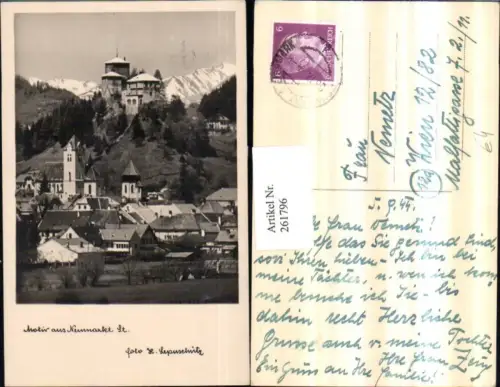 Motiv aus Neumarkt. St.
foto H.
6
DEUTSCHES REICH
Frau
Nemetz
Wien 12/82
7. 2/11.
64
Artikel Nr.
261796
5. 9. 44.
Frau Nemetz!
das Sie gesund sind,
Ihren lieben - Ich bin bei
meine Tochter, u. wen ich
me besuche ich Sie - bis
dahin recht Herzliche
Grüsse auch v. meine Tochter
Ein Gruss an Ihre Familie!
Ihre Frau